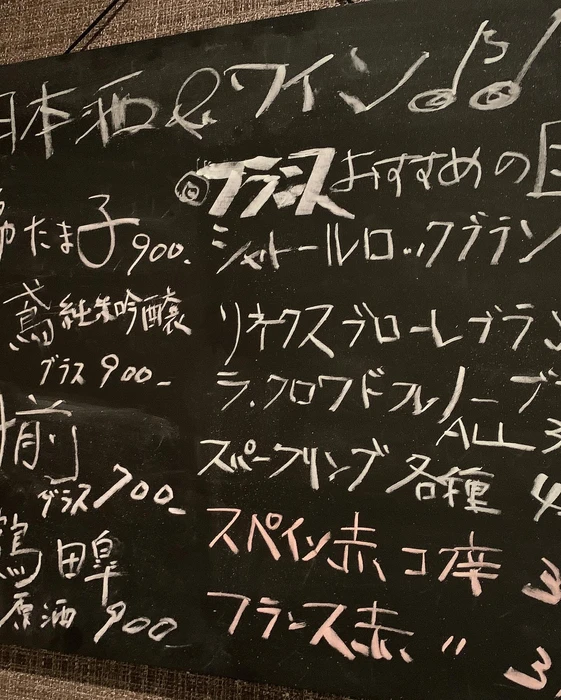 日本酒&ワイン
たま子 900.
純米吟醸
グラス 900-
グラス 700-
田 原酒 900
◎フランス おすすめの
シャトールロックブラン
リネクスブローレブラン
ラ.クロワドフルノーブ
ALL 3
スパークリング各種 4
スペイン赤 3
フランス赤 〃 3